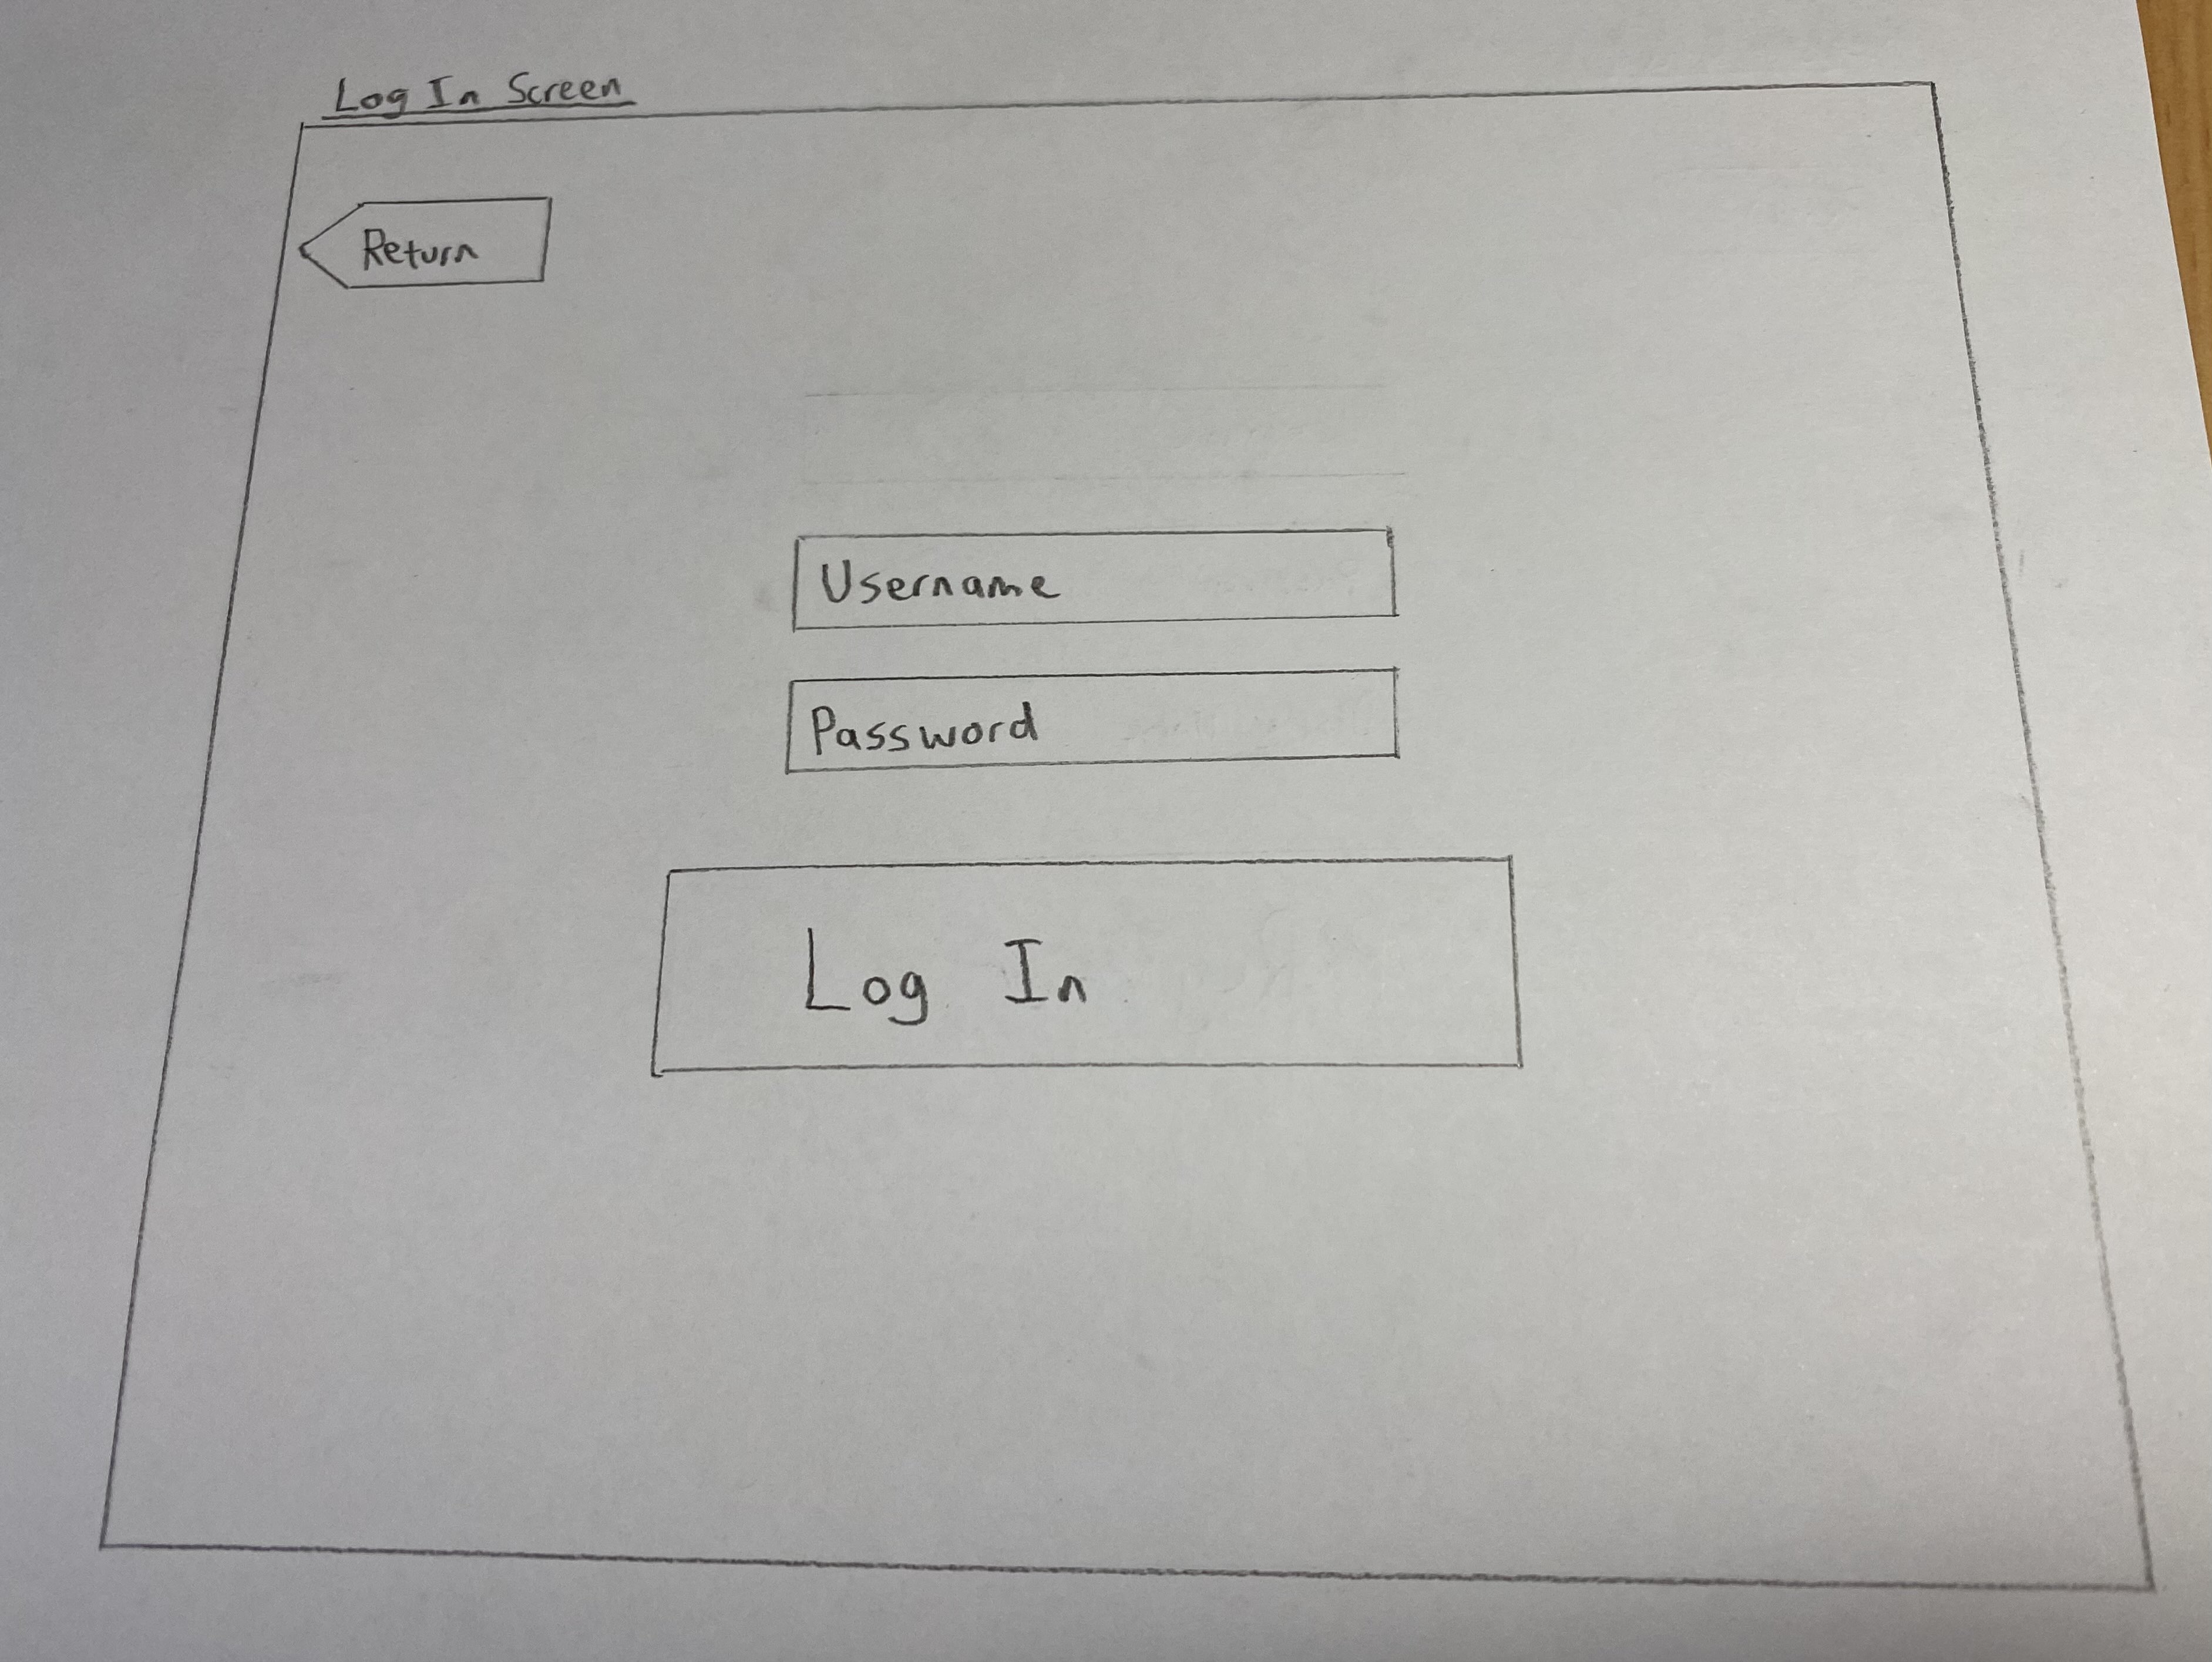 Log In Screen
Return
Username
Password
Log In